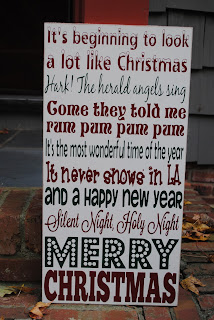 It's beginning to look
a lot like Christmas
Hark! The herald angels sing
Come they told me
rum pum pum pum
It's the most wonderful time of the year
It never snows in LA
and a happy new year
Silent Night, Holy Night
MERRY
CHRISTMAS